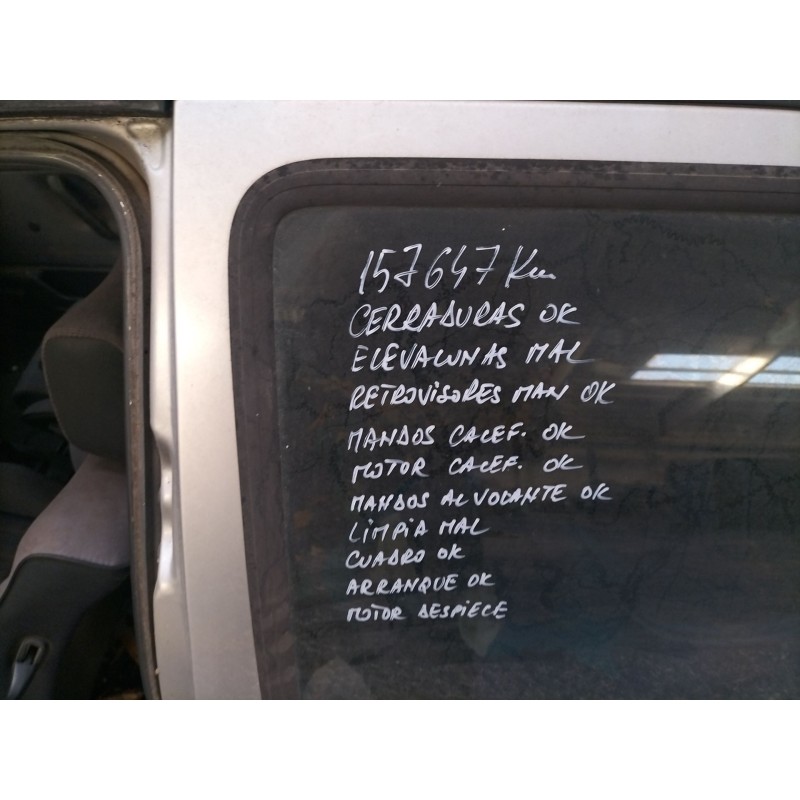 157647 Km
CERRADURAS OK
ELEVALUNAS MAL
RETROVISORES MAN OK
MANDOS CALEF. OK
MOTOR CALEF. OK
MANDOS AL VOLANTE OK
LIMPIA MAL
CUADRO OK
ARRANQUE OK
MOTOR DESPIECE